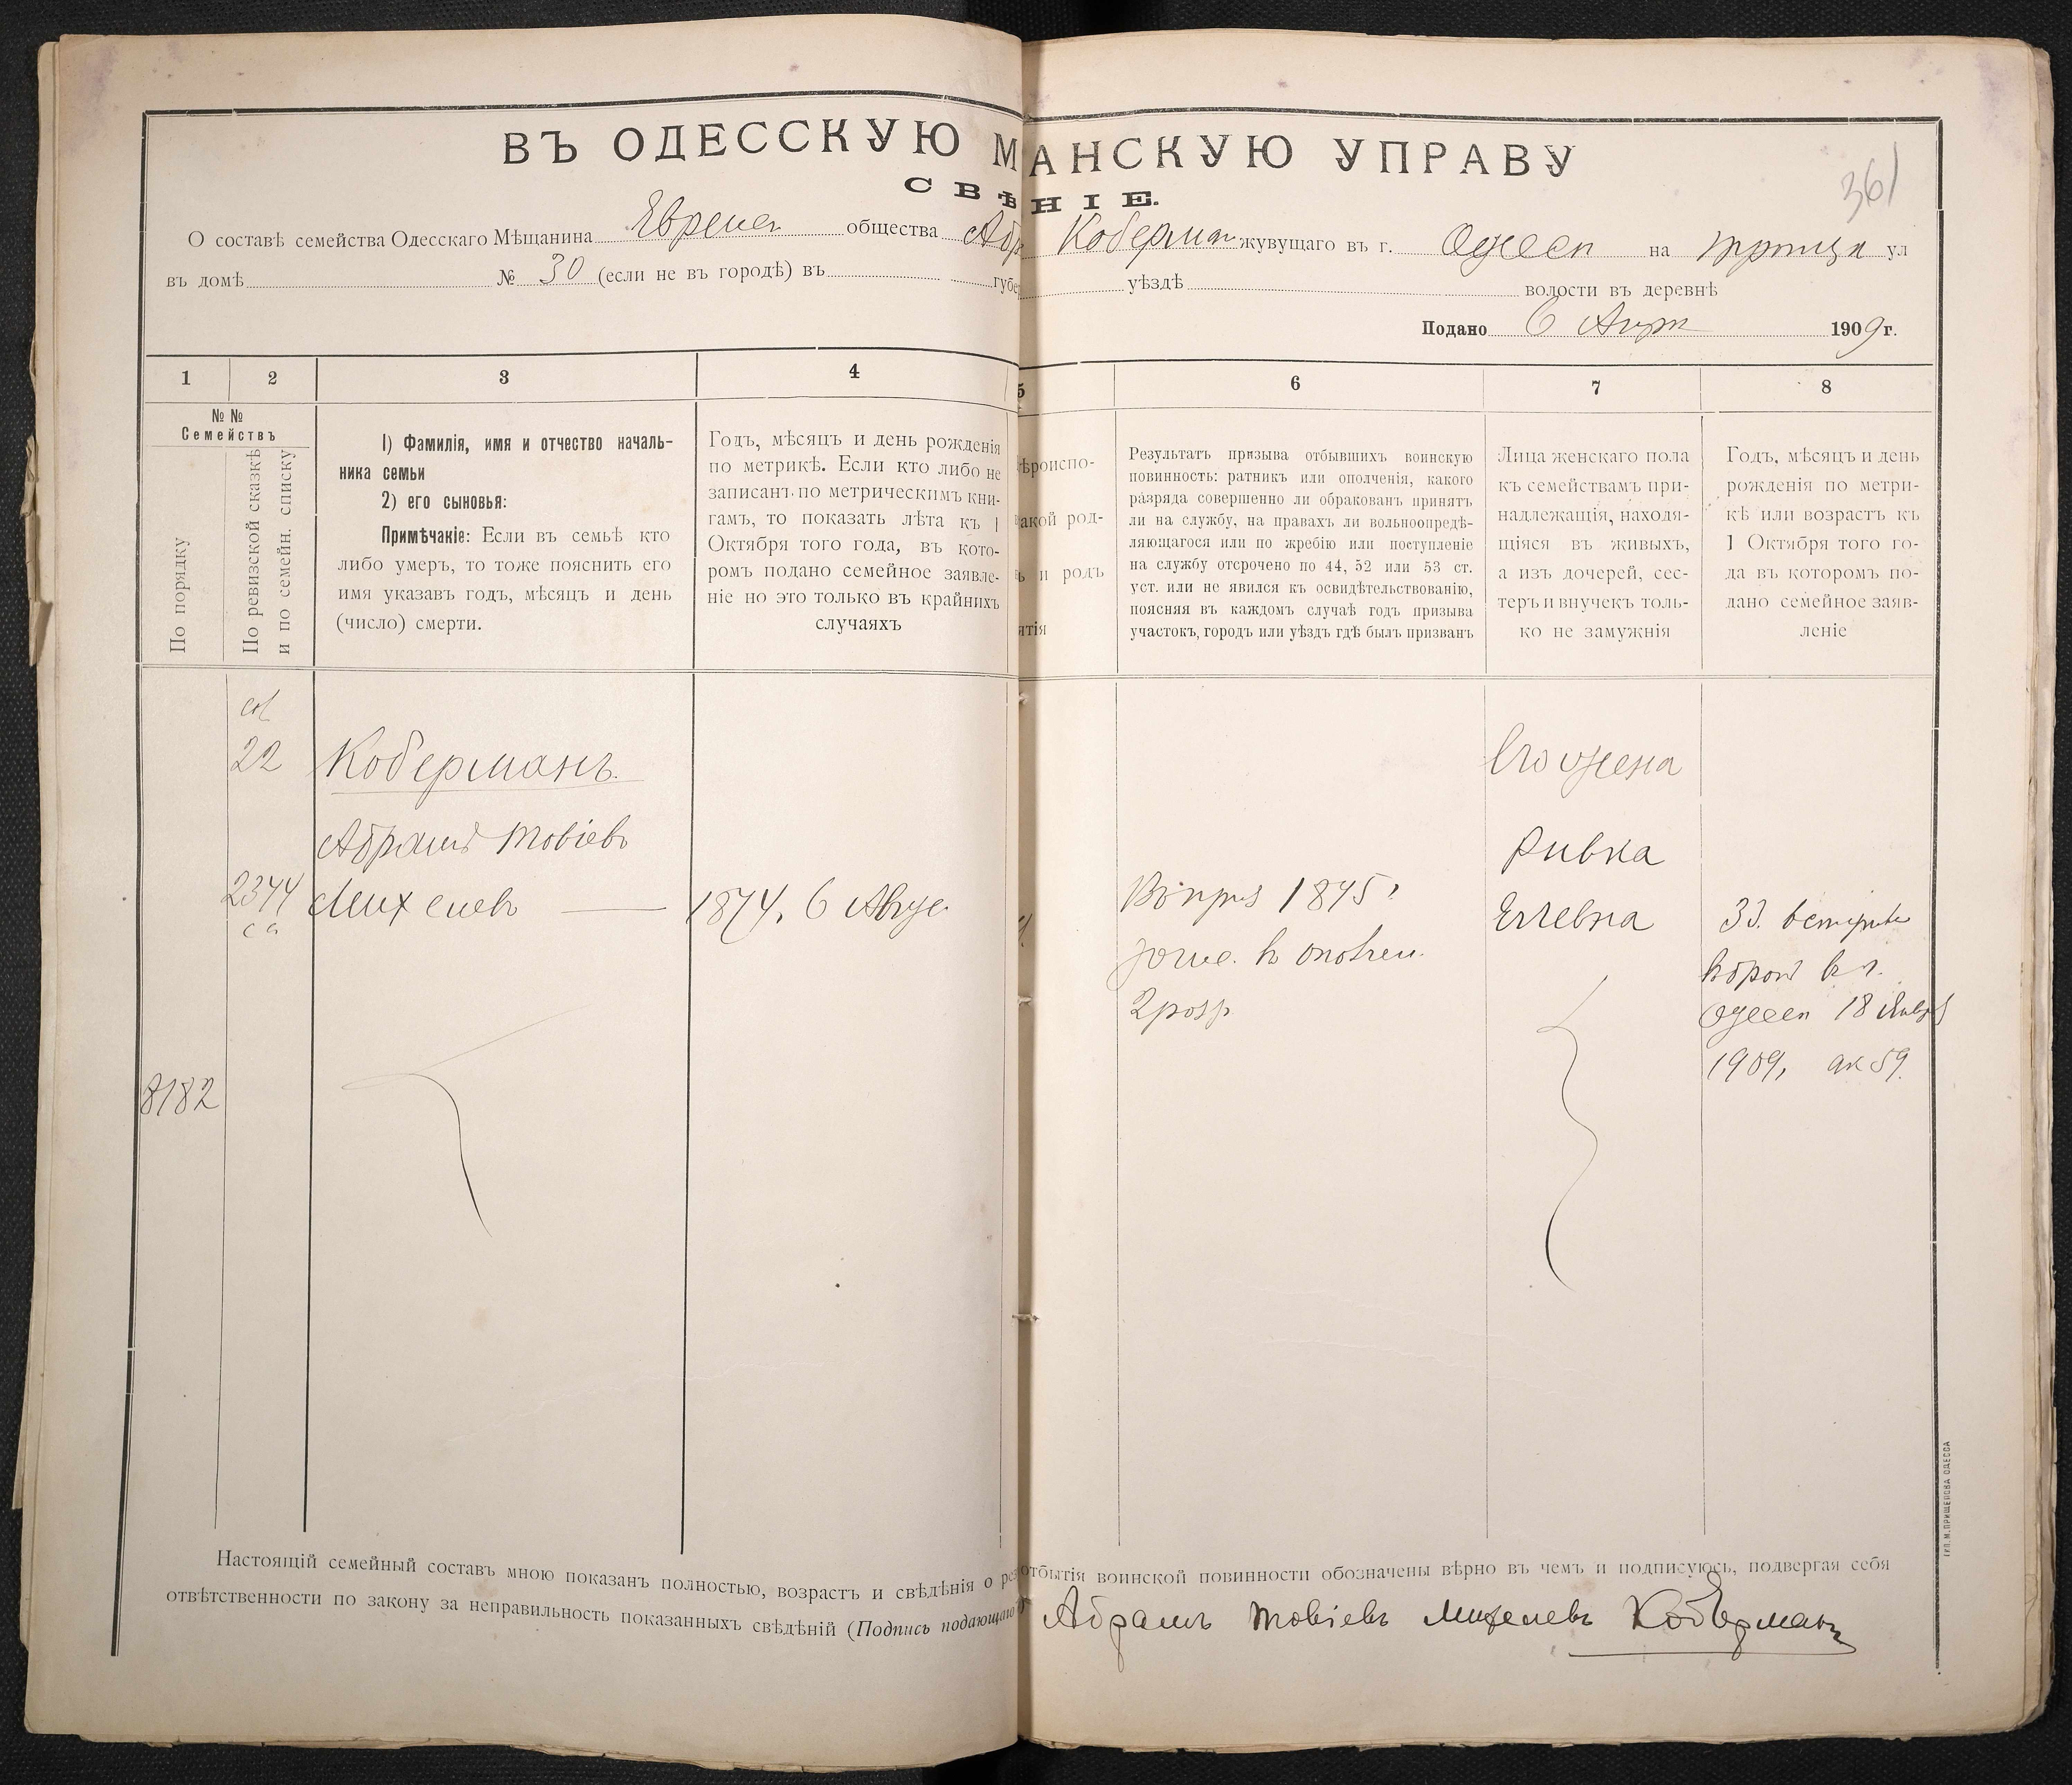 ВЪ ОДЕССКУЮ М АНСКУЮ УПРАВУ
361
СВѢ НІЕ.
О составѣ семейства Одесскаго Мѣщанина Еврея общества Абр Коберман жувущаго въ г. Одессѣ на ул
въ домѣ № 30 (если не въ городѣ) въ губе уѣздѣ волости въ деревнѣ
Подано 6 Апрл 1909 г.
1 2 3 4 5 6 7 8
№ №
Семействъ
По порядку
По ревизской сказкѣ
и по семейн. списку
1) Фамилія, имя и отчество началь-
ника семьи
2) его сыновья:
Примѣчакіе: Если въ семьѣ кто
либо умеръ, то тоже пояснить его
имя указавъ годъ, мѣсяцъ и день
(число) смерти.
Годъ, мѣсяцъ и день рожденія
по метрикѣ. Если кто либо не
записанъ по метрическимъ кни-
гамъ, то показать лѣта къ 1
Октября того года, въ кото-
ромъ подано семейное заявле-
ніе но это только въ крайнихъ
случаяхъ
ѣроиспо-
акой род-
ь и родъ
ятія
Результатъ призыва отбывшихъ воинскую
повинность: ратник или ополченія, какого
разряда совершенно ли обракованъ принятъ
ли на службу, на правахъ ли вольноопредѣ-
ляющагося или по жребію или поступленіе
на службу отсрочено по 44, 52 или 53 ст.
уст. или не явился къ освидѣтельствованію,
поясняя въ каждомъ случаѣ годъ призыва
участокъ, городъ или уѣздъ гдѣ былъ призванъ
Лица женскаго пола
къ семействамъ при-
надлежащія, находя-
щіяся въ живыхъ,
а изъ дочерей, сес-
теръ и внучекъ толь-
ко не замужнія
Годъ, мѣсяцъ и день
рожденія по метри-
кѣ или возрастъ къ
1 Октября того го-
да въ котором по-
дано семейное заяв-
леніе
22
2344
8182
Коберманъ
Абрамъ Товіевъ
Михелевъ
1874, 6 Авгус
1895
2 разр
Его жена
Ривка
33.
Одессѣ 18 Января
1909, ак 59.
Настоящій семейный составъ мною показанъ полностью, возрастъ и свѣдѣнія о рез отбытія воинской повинности обозначены вѣрно въ чемъ и подписуюсь, подвергая себя
отвѣтственности по закону за неправильность показанныхъ свѣдѣній (Подпись подающаго Абрамъ Товіевъ Михелевъ Коберманъ
ТИП. М. ПРИЩЕПОВА ОДЕССА